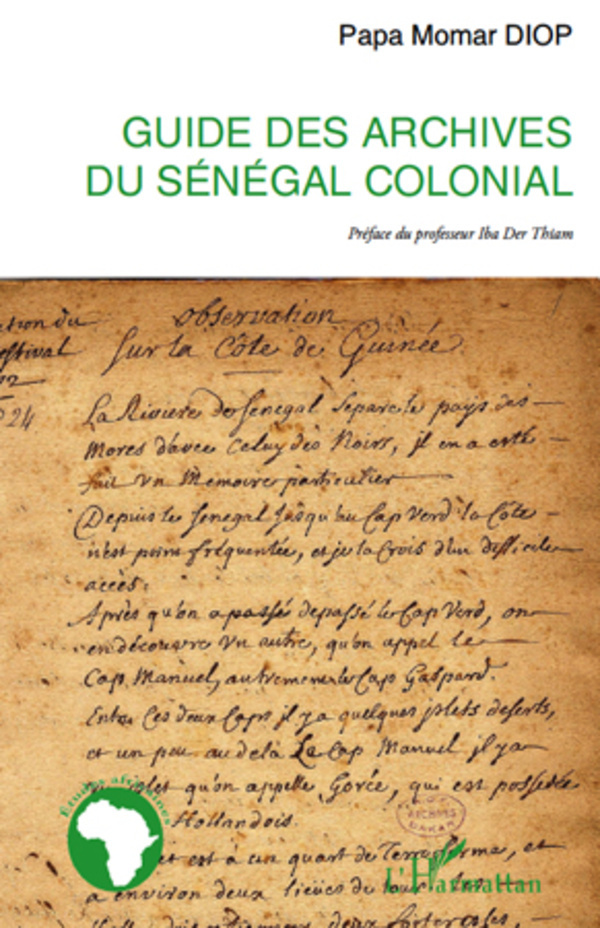 Papa Momar DIOP
GUIDE DES ARCHIVES
DU SÉNÉGAL COLONIAL
Préface du professeur Iba Der Thiam
observation
sur la Côte de Guinée
24
La Riviere de Senegal Separe le pays des
Mores d'avec Celuy des Noirs, il en a esté
fait un Memoire particulier
Depuis le Senegal Jusqu'au Cap Verd la Côte
n'est point fréquentée, et je la Crois d'un difficile
accès.
Après qu'on a passé depassé le Cap Verd, on
en découvre un autre, qu'on appel le
Cap Manuel, autrement le Cap Gaspard.
Entre Ces deux Caps il y a quelques jslets deserts,
et un peu au delà Le Cap Manuel il y a
qu'on appelle Gorée, qui est possedée
Hollandois.
et est à un quart de Terre ferme, et
a environ deux lieües de tour
Études africaines
ARCHIVES
DAKAR
L'Harmattan